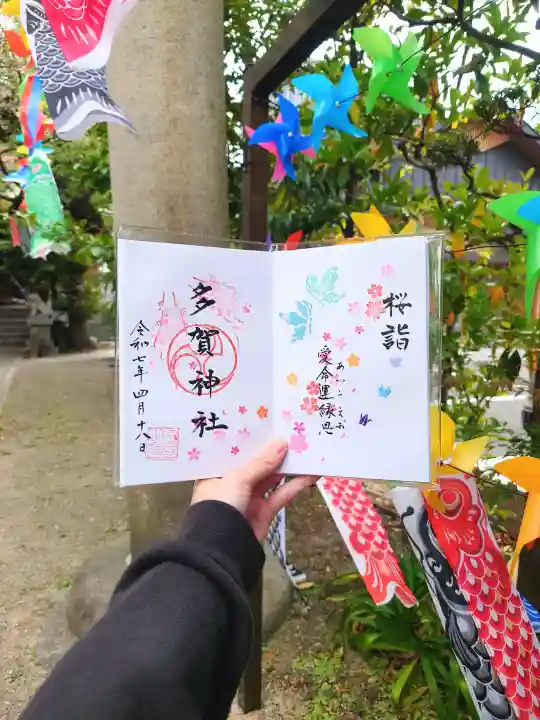 桜詣
愛命運縁恩
あいうえお
多賀神社
令和七年四月十八日